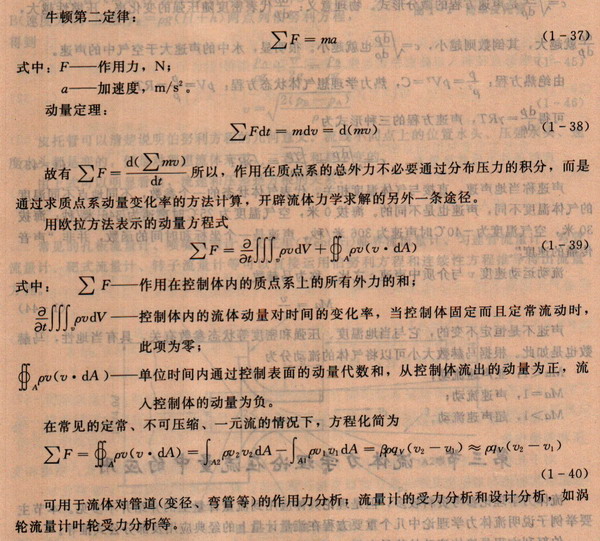 牛顿第二定律：
∑F=ma (1-37)
式中：F——作用力，N；
a——加速度，m/s²。
动量定理：
∑Fdt=mdv=d(mv) (1-38)
故有 ∑F=d(∑mv)/dt 所以，作用在质点系的总外力不必要通过分布压力的积分，而是
通过求质点系动量变化率的方法计算，开辟流体力学求解的另外一条途径。
用欧拉方法表示的动量方程式
∑F=∂/∂t∭ᵥρvdV+∯_A ρv(v·dA) (1-39)
式中：∑F——作用在控制体内的质点系上的所有外力的和；
∂/∂t∭ᵥρvdV——控制体内的流体动量对时间的变化率，当控制体固定而且定常流动时，
此项为零；
∯_A ρv(v·dA)——单位时间内通过控制表面的动量代数和，从控制体流出的动量为正，流
入控制体的动量为负。
在常见的定常、不可压缩、一元流的情况下，方程化简为
∑F=∯_A ρv(v·dA)=∫_A2 ρv₂v₂dA-∫_A1 ρv₁v₁dA=βρq_V(v₂-v₁)≈ρq_V(v₂-v₁)
(1-40)
可用于流体对管道(变径、弯管等)的作用力分析；流量计的受力分析和设计分析，如涡
轮流量计叶轮受力分析等。